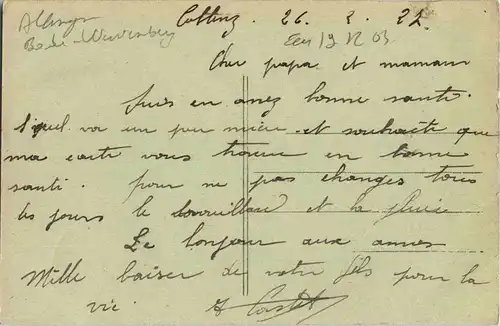 Coblenz. 26. 2. 22.
Cher papa et maman
suis en assez bonne santé.
va un peu mieu et souhaite que
ma carte vous trouve en bonne
santé. pour ne pas changer tous
les jours le brouillard et la pluie
Le bonjour aux amis
Mille baiser de votre fils pour la
vie.